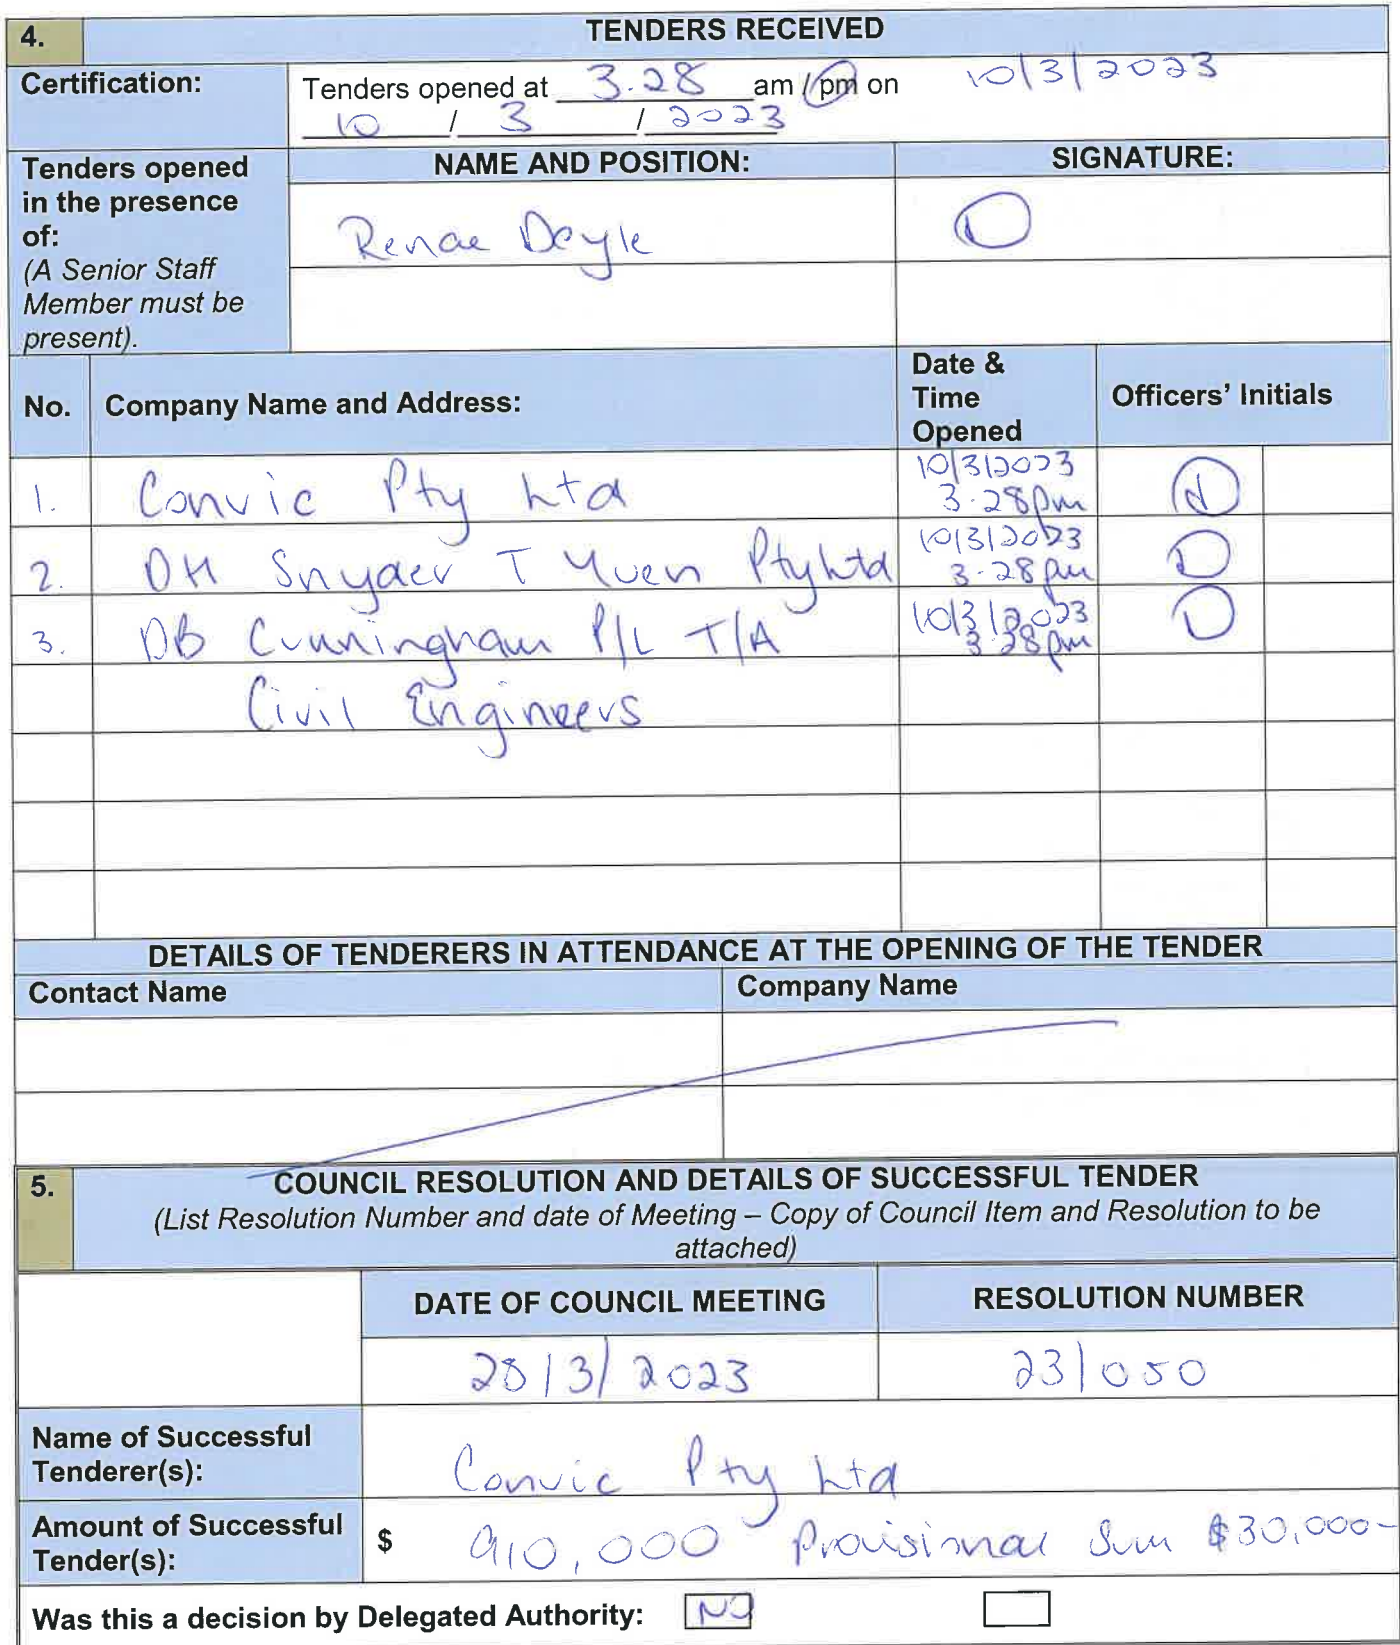 4. TENDERS RECEIVED
Certification:
Tenders opened at 3.28 am / pm on 10/3/2023
10 / 3 / 2023
Tenders opened
in the presence
of:
(A Senior Staff
Member must be
present).
NAME AND POSITION: SIGNATURE:
Renae Doyle
No. Company Name and Address: Date &
Time
Opened Officers' Initials
1. Convic Pty Ltd 10/3/2023
3.28pm
2. DH Snyder T Yuen Pty Ltd 10/3/2023
3.28pm
3. DB Cunningham P/L T/A 10/3/2023
3.28pm
Civil Engineers
DETAILS OF TENDERERS IN ATTENDANCE AT THE OPENING OF THE TENDER
Contact Name Company Name
5. COUNCIL RESOLUTION AND DETAILS OF SUCCESSFUL TENDER
(List Resolution Number and date of Meeting – Copy of Council Item and Resolution to be
attached)
DATE OF COUNCIL MEETING RESOLUTION NUMBER
28/3/2023 23/050
Name of Successful
Tenderer(s):
Convic Pty Ltd
Amount of Successful
Tender(s):
$ 910,000 Provisional Sum $30,000-
Was this a decision by Delegated Authority: NO